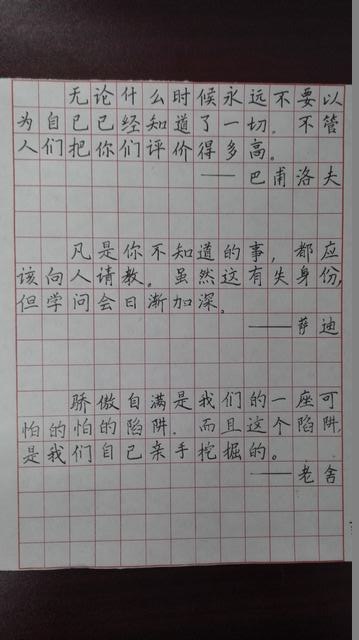 无论什么时候永远不要以
为自己已经知道了一切。不管
人们把你们评价得多高。
——巴甫洛夫
凡是你不知道的事，都应
该向人请教。虽然这有失身份，
但学问会日渐加深。
——萨迪
骄傲自满是我们的一座可
怕的怕的陷阱．而且这个陷阱，
是我们自己亲手挖掘的。
——老舍